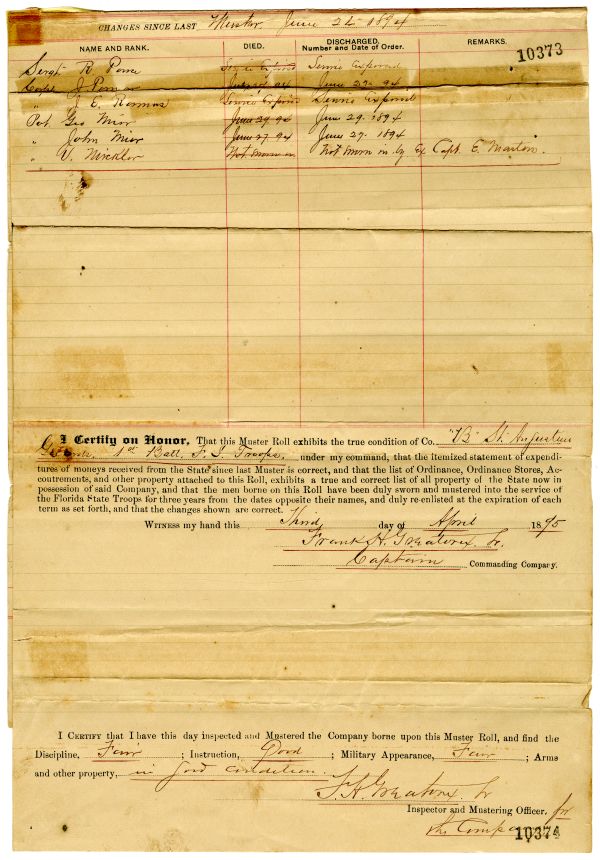 CHANGES SINCE LAST Muster June 26 1894
NAME AND RANK. DIED. DISCHARGED. Number and Date of Order. REMARKS.
10373
Sergt R. Service Expired
Corpl J. June 29 94
" J. E. Service Expired Service Expired
Pvt. Geo Mier June 29 94 June 29. 1894
" John Mier June 27. 94 June 27. 1894
" V. Mickler Not sworn in Not sworn in by Ex Capt. E.
I Certify on Honor. That this Muster Roll exhibits the true condition of Co. "B" St. Augustine
Guards, 1st Batt. F. S. Troops. under my command, that the itemized statement of expendi-
tures of moneys received from the State since last Muster is correct, and that the list of Ordinance, Ordinance Stores, Ac-
coutrements, and other property attached to this Roll, exhibits a true and correct list of all property of the State now in
possession of said Company, and that the men borne on this Roll have been duly sworn and mustered into the service of
the Florida State Troops for three years from the dates opposite their names, and duly re-enlisted at the expiration of each
term as set forth, and that the changes shown are correct.
WITNESS my hand this Third day of April 1895
Frank H. Greatorex, Jr.
Captain Commanding Company.
I CERTIFY that I have this day inspected and Mustered the Company borne upon this Muster Roll, and find the
Discipline, Fair ; Instruction, Good ; Military Appearance, Fair ; Arms
and other property, in good condition.
F. H. Greatorex, Jr
Inspector and Mustering Officer. for
the Company
10374